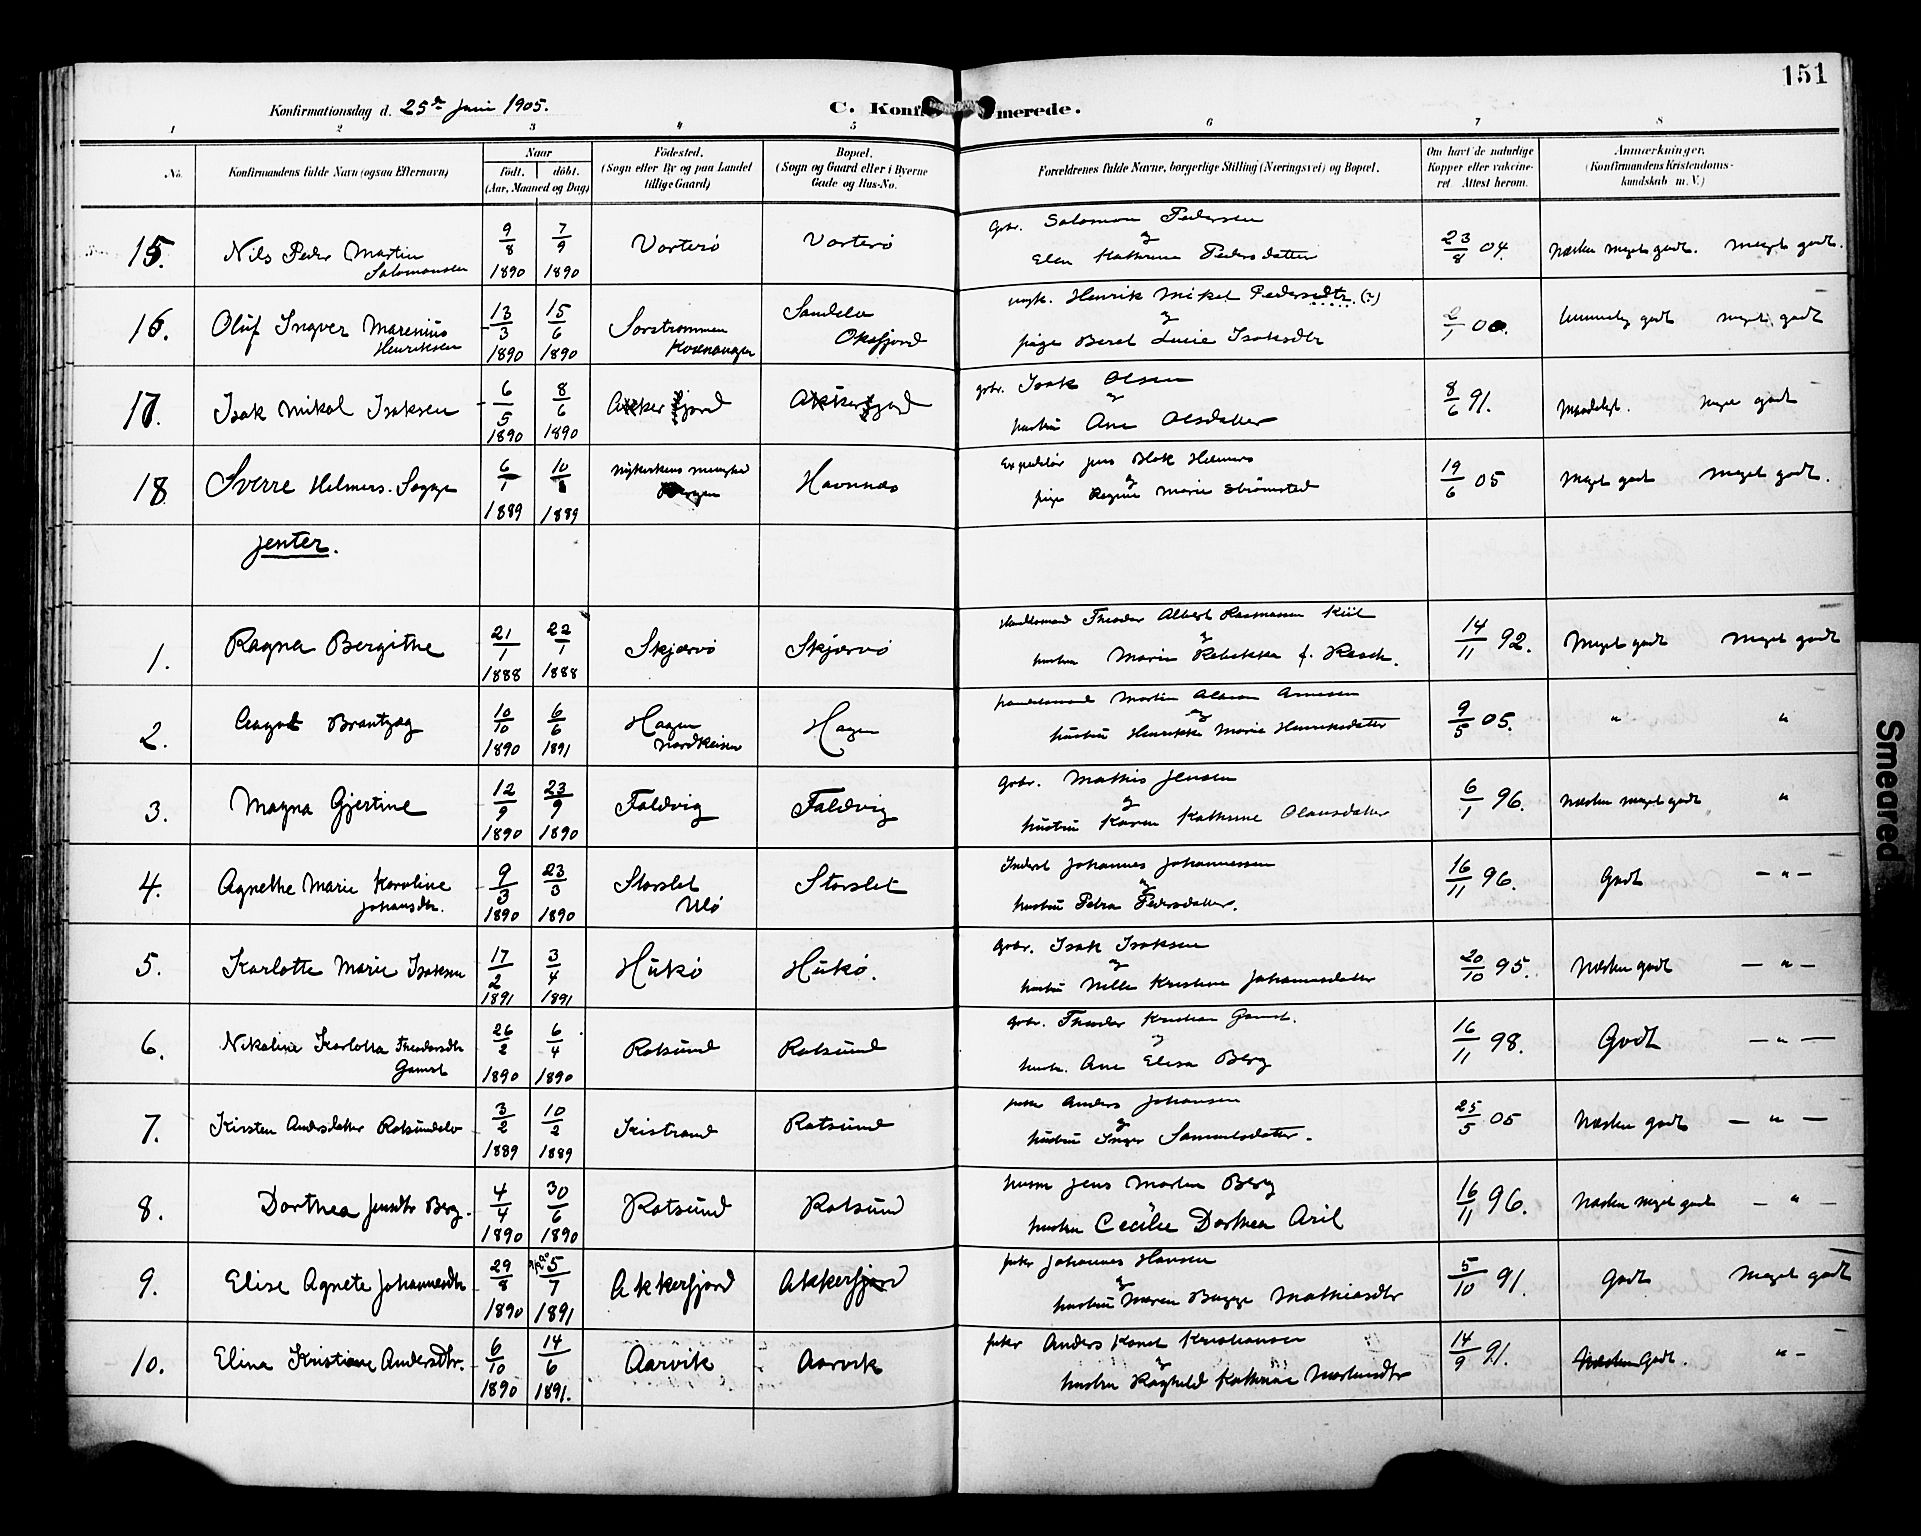 151
Konfirmationsdag d. 25de Juni 1905.
C. Konf merede.
1 2 3 4 5 6 7 8
No. Konfirmandens fulde Navn (ogsaa Efternavn) Naar født. døbt. (Aar, Maaned og Dag) Fødested. (Sogn eller By og paa Landet tillige Gaard) Bopæl. (Sogn og Gaard eller i Byerne Gade og Hus-No. Forældrenes fulde Navne, borgerlige Stilling (Næringsvei) og Bopæl. Om havt de naturlige Kopper eller vakcineret Attest herom. Anmærkninger. (Konfirmandens Kristendomskundskab m. V.)
15. Nils Peder Martin Salomonsen 9/8 1890 7/9 1890 Vorterø Vorterø Gbr. Salomon Pedersen og Elen Kathrine Pedersdatter 23/8 04. Næsten meget godt. meget godt.
16. Oluf Ingver Marenius Henriksen 13/3 1890 15/6 1890 Sørstrømmen Kvænangen Sandelv Oksfjord ungk. Henrik Mikel Pedersdtr. (?) og pige Beret Lucie Isaksdtr 2/1 00. temmelig godt meget godt
17. Isak Mikal Isaksen 6/5 1890 8/6 1890 Akkerfjord Akkerfjord gbr. Isak Olsen og hustru Ane Olsdatter 8/6 91. Maadeligt. meget godt
18. Sverre Helmers. Sagge 6/1 1889 10/8 1889 Nykirkens menighed Bergen Havnnæs Expeditør Jens Blok Helmers og pige Ragna Marie Strømsted 19/6 05 Meget godt meget godt.
Jenter.
1. Ragna Bergithe 21/1 1888 22/1 1888 Skjærvø Skjærvø Handlsmand Theodor Albert Rasmussen Kiil og hustru Marie Rebekka f. Resch. 14/11 92. Meget godt meget godt
2. Aagot Brantzæg 10/10 1890 6/6 1891 Hagen Nordreisen Hagen handelsmand Martin Arnesen og hustru Henrikke Marie Henriksdatter 9/5 05. " "
3. Magna Gjertine 12/9 1890 23/9 1890 Faldvig Faldvig Gbr. Mathis Jensen og hustru Karen Kathrine Olausdatter 6/1 96. Næsten meget godt "
4. Agnethe Marie Karoline Johansdtr. 9/3 1890 23/3 1890 Storslet Ulø Storslet Inderst Johannes Johannessen og hustru Petra Pedersdatter. 16/11 96. Godt — " —
5. Karlotte Marie Isaksen 17/2 1891 3/4 1891 Hukø Hukø. Gbr. Isak Isaksen og hustru Nille Kristine Johannesdatter 20/10 95. Næsten godt — " —
6. Nikoline Karlotta Theodorsdtr Gamst 26/2 1890 6/4 1890 Rotsund Rotsund Gbr. Theodor Kristian Gamst. og hustr. Ane Elisa Berg 16/11 98. Godt — " —
7. Kirsten Andersdatter Rotsundelv 3/2 1889 10/2 1889 Kistrand Rotsund fisker Anders Johansen og hustru Inger Samuelsdatter. 25/5 05 Næsten godt — " —
8. Dorthea Jensdtr Berg. 4/4 1890 30/6 1890 Rotsund Rotsund Jens Morten Berg hustru Cecilie Dorthea Aril 16/11 96. Næsten meget godt — " —
9. Elise Agnete Johannesdtr 29/8 1890 5/7 1891 Akkerfjord Akkerfjord fisker Johannes Hansen og hustru Maren Bugge Mathiasdtr 5/10 91. Godt Meget godt
10. Elina Kristiane Andersdtr. 6/10 1890 14/6 1891. Aarvik Aarvik fisker Anders Kornel Kristiansen og hustru Raghild Kathrine Mortensdtr 14/9 91. Næsten Godt. " —
Smeared